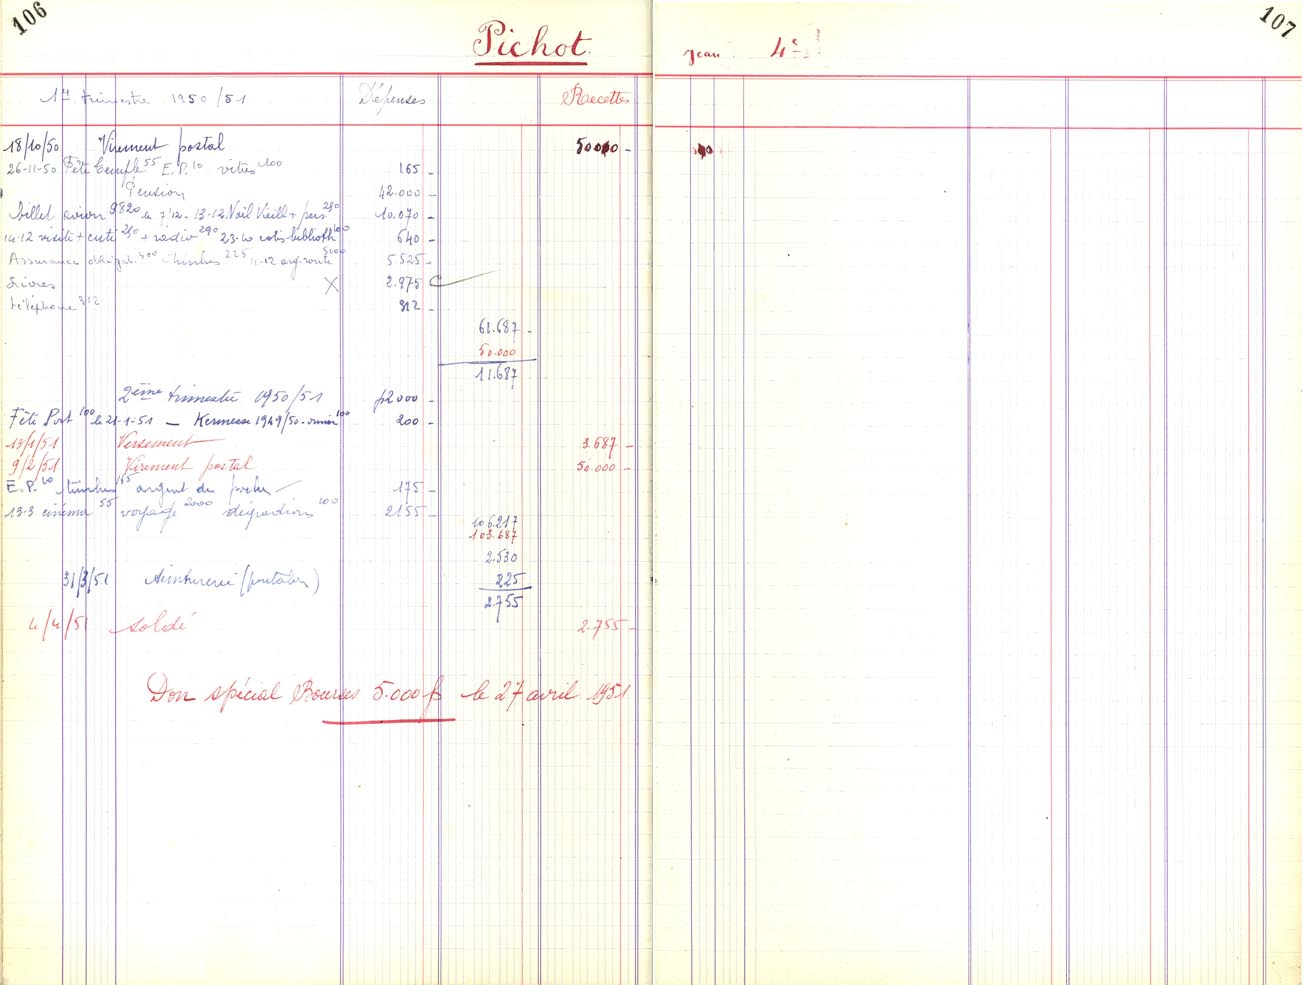 106
Pichot.
1er trimestre 1950/51 Dépenses Recettes
18/10/50 Virement postal 50000 -
26-11-50 Fête Temple 55 E.P. 10 vitres 100 165 -
Pension 42.000 -
billet avion 9820 le 7/12 - 13-12 Noël Vieill + pens 250 10.070 -
14-12 visite + cuti 250 + radio 290 23-10 cotis biblioth 100 640 -
Assurance obligat. 300 timbres 225 11-12 arg. route 5000 5525 -
Livres X 2.975
téléphone 312 312 -
61.687 -
50.000
11.687
2ème trimestre 1950/51 42000 -
Fête Port 100 le 21-1-51 - Kermesse 1949/50 100 200 -
13/1/51 Versement 3.687 -
9/2/51 Virement postal 50.000 -
E.P. 10 timbres 165 argent de poche 175 -
13-3 cinéma 55 voyage 2000 dégradions 100 2155 -
106.217
103.687
2.530
31/3/51 teinturerie (pantalon) 225
2.755
4/4/51 soldé 2.755 -
Don spécial Bourses 5.000 f le 27 avril 1951
107
Jean 4e